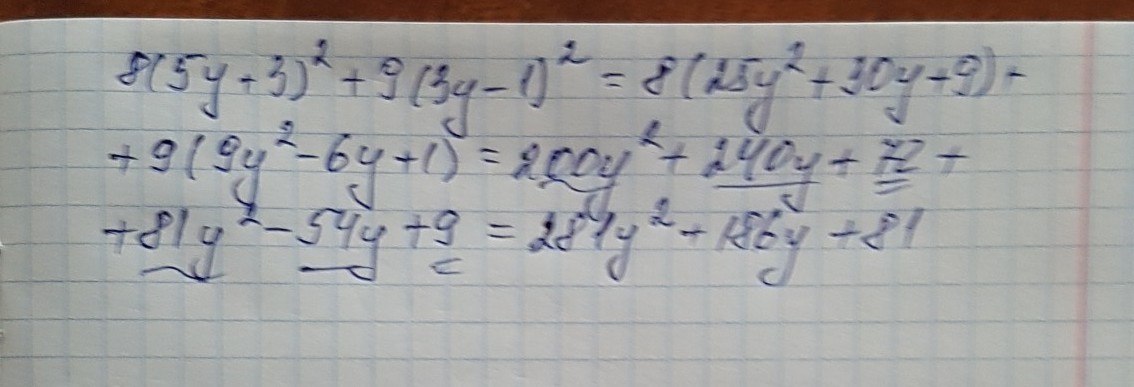 8(5y+3)² + 9(3y-1)² = 8(25y²+30y+9)+
+9(9y²-6y+1) = 200y² + 240y + 72 +
+81y² - 54y + 9 = 281y² + 186y + 81